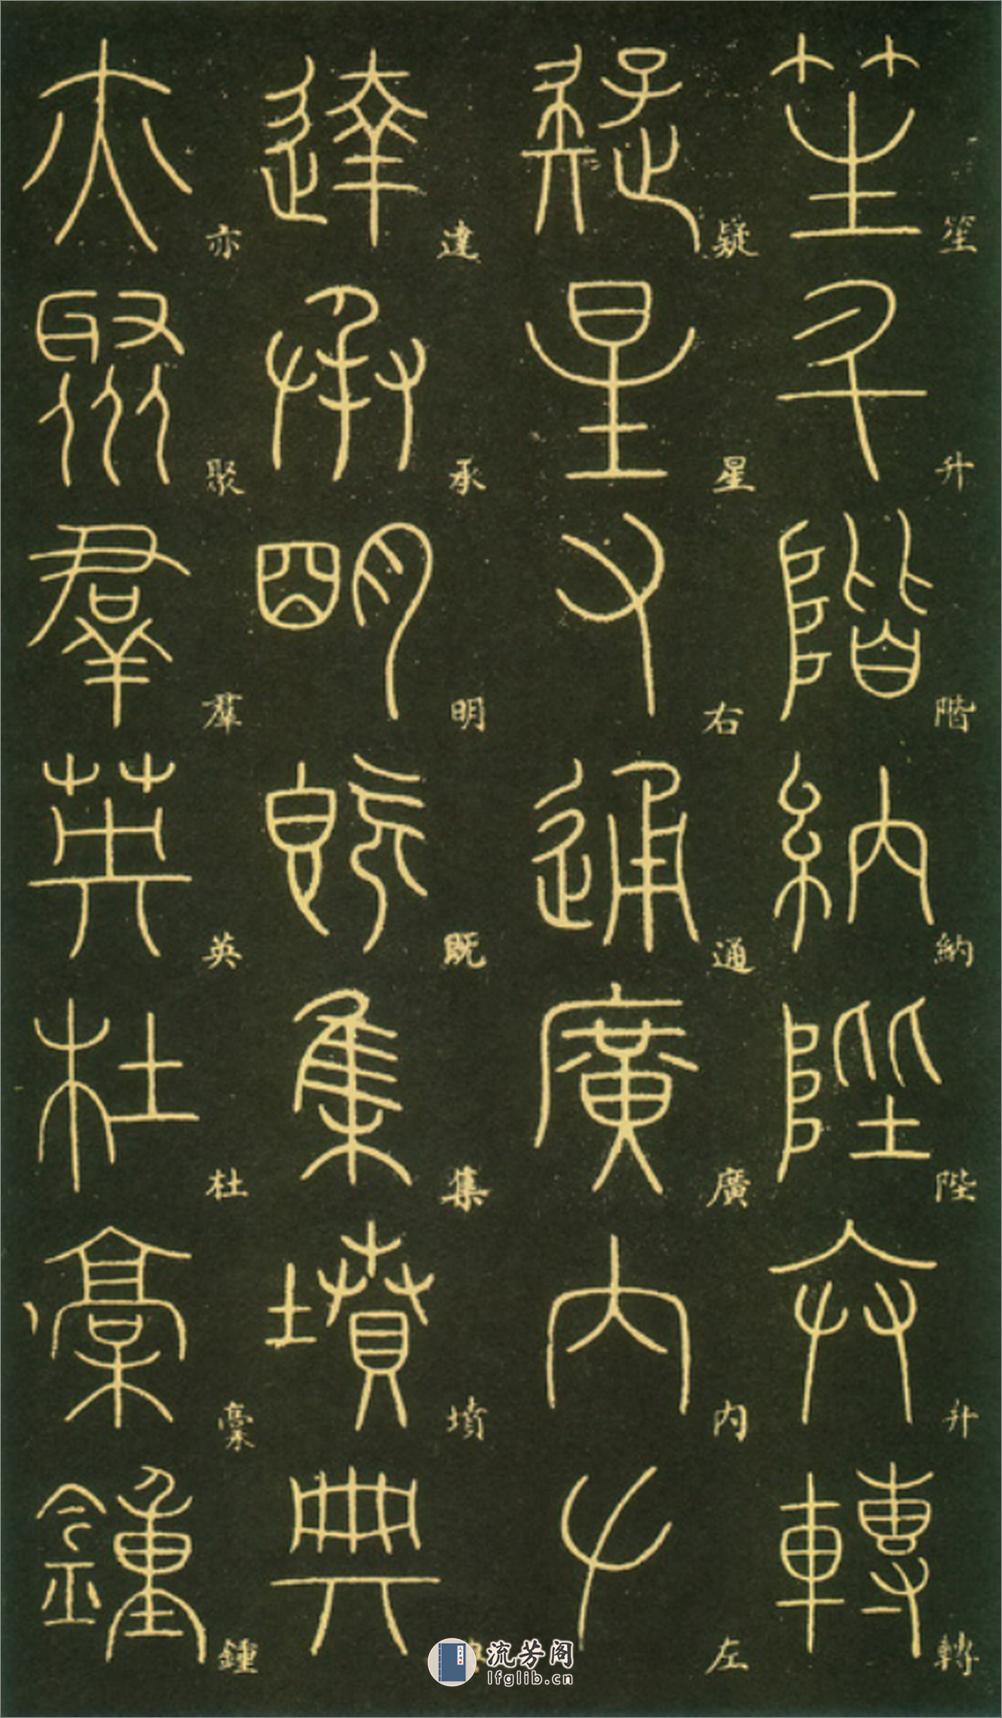 笙升階納陛弁轉
疑星右通廣内左
達承明既集墳典
亦聚羣英杜稾鍾
流芳阁
lfglib.cn